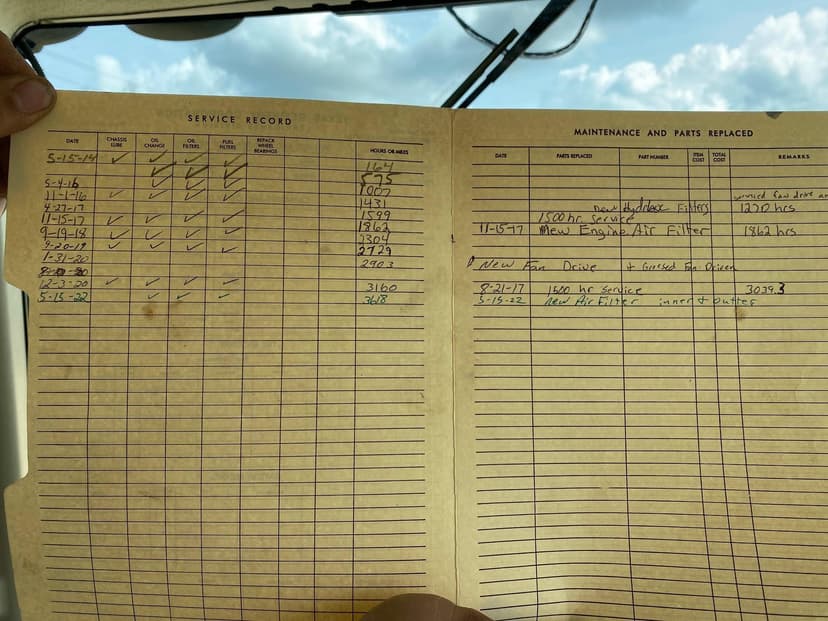 SERVICE RECORD
DATE CHASSIS LUBE OIL CHANGE OIL FILTERS FUEL FILTERS REPACK WHEEL BEARINGS HOURS OR MILES
5-15-14 ✓ ✓ ✓ ✓ 164
✓ ✓ ✓ 575
5-4-16 ✓ ✓ ✓ 1007
11-1-16 ✓ ✓ ✓ ✓ 1431
4-27-17 1599
11-15-17 ✓ ✓ ✓ ✓ 1862
9-19-18 ✓ ✓ ✓ ✓ 2304
9-20-19 ✓ ✓ ✓ ✓ 2729
1-31-20 2903
12-3-20 ✓ ✓ ✓ ✓ 3160
5-15-22 ✓ ✓ ✓ 3618
MAINTENANCE AND PARTS REPLACED
DATE PARTS REPLACED PART NUMBER ITEM COST TOTAL COST REMARKS
fan drive
new Filters 1270 hrs
1500 hr. service
11-15-17 New Engine Air Filter 1862 hrs
New Fan Drive + Greased Fan
8-21-17 1500 hr service 3039.3
5-15-22 new Air Filter inner + outter